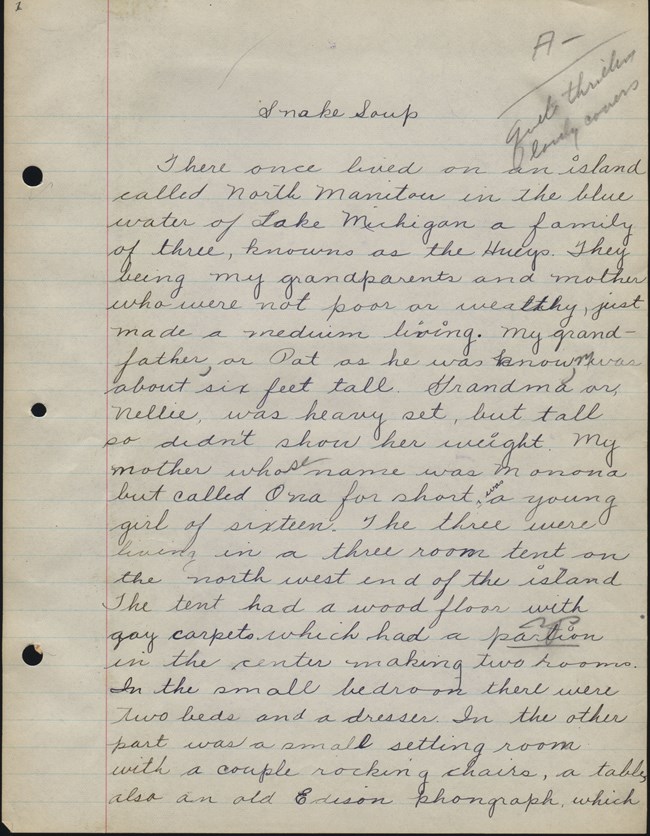 A-
Quite thrilling
lovely covers
Snake Soup
There once lived on an island
called North Manitou in the blue
water of Lake Michigan a family
of three, knowns as the Hueys. They
being my grandparents and mother
who were not poor or wealthy, just
made a medium living. My grand-
father, or Pat as he was known, was
about six feet tall. Grandma or,
Nellie, was heavy set, but tall
so didn't show her weight. My
mother whose name was Monona
but called Ona for short, was a young
girl of sixteen. The three were
living in a three room tent on
the north west end of the island
The tent had a wood floor with
gay carpets which had a partion
in the center making two rooms.
In the small bedroon there were
two beds and a dresser. In the other
part was a small setting room
with a couple rocking chairs, a table,
also an old Edison phongraph, which